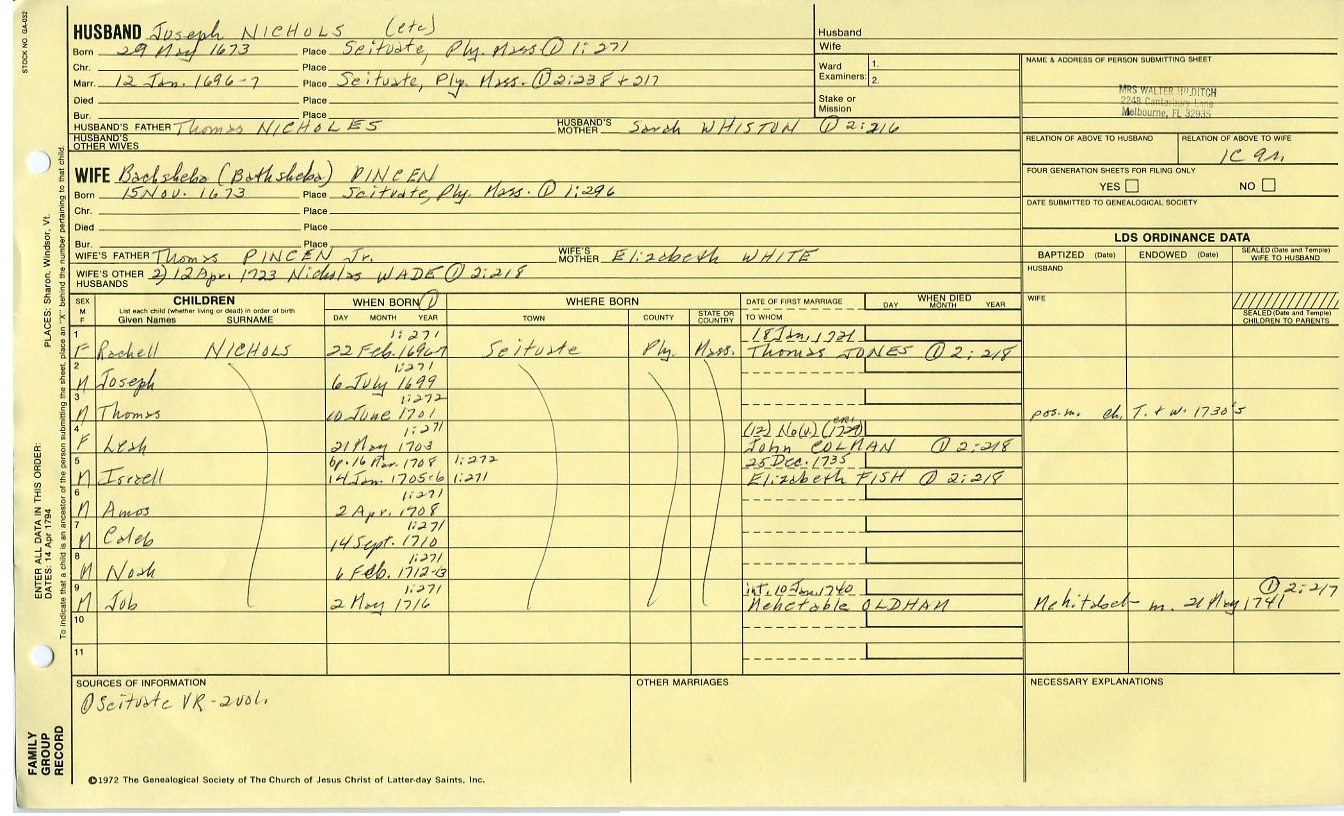 STOCK NO. GA-032
HUSBAND Joseph NICHOLS (etc)
Born 29 May 1673 Place Scituate, Ply. Mass ① 1:271
Chr. Place
Marr. 12 Jan. 1696-7 Place Scituate, Ply. Mass. ① 2:238 + 217
Died Place
Bur. Place
HUSBAND'S FATHER Thomas NICHOLES HUSBAND'S MOTHER Sarah WHISTON ① 2:216
HUSBAND'S OTHER WIVES
WIFE Bachsheba (Bathsheba) PINCEN
Born 15 Nov. 1673 Place Scituate, Ply. Mass. ① 1:296
Chr. Place
Died Place
Bur. Place
WIFE'S FATHER Thomas PINCEN Jr. WIFE'S MOTHER Elizabeth WHITE
WIFE'S OTHER HUSBANDS 2) 12 Apr. 1723 Nicholas WADE ① 2:218
Husband
Wife
Ward 1.
Examiners: 2.
Stake or Mission
NAME & ADDRESS OF PERSON SUBMITTING SHEET
MRS WALTER HILDITCH
2248 Canterbury Lane
Melbourne, FL 32935
RELATION OF ABOVE TO HUSBAND RELATION OF ABOVE TO WIFE
1C 9n
FOUR GENERATION SHEETS FOR FILING ONLY
YES NO
DATE SUBMITTED TO GENEALOGICAL SOCIETY
LDS ORDINANCE DATA
BAPTIZED (Date) ENDOWED (Date) SEALED (Date and Temple) WIFE TO HUSBAND
HUSBAND
WIFE
SEALED (Date and Temple) CHILDREN TO PARENTS
SEX M F CHILDREN WHEN BORN ① WHERE BORN DATE OF FIRST MARRIAGE WHEN DIED
List each child (whether living or dead) in order of birth
Given Names SURNAME DAY MONTH YEAR TOWN COUNTY STATE OR COUNTRY TO WHOM DAY MONTH YEAR
1 1:271 18 Jan. 1721
F Rachell NICHOLS 22 Feb. 1696-7 Scituate Ply. Mass. Thomas JONES ① 2:218
2 1:271
M Joseph 6 July 1699
3 1:272
M Thomas 10 June 1701 pos. m. ch. T. + W. 1730's
4 1:271 (12) No(v.) (1729)
F Leah 21 May 1703 John COLMAN ① 2:218
5 bp. 16 Mar. 1708 1:272 25 Dec. 1735
M Israell 14 Jan. 1705-6 1:271 Elizabeth FISH ① 2:218
6 1:271
M Amos 2 Apr. 1708
7 1:271
M Caleb 14 Sept. 1710
8 1:271
M Noah 6 Feb. 1712-13
9 1:271 int. 10 Jan. 1740 ① 2:217
M Job 2 May 1716 Mehetable OLDHAM Mehitabel m. 21 May 1741
10
11
SOURCES OF INFORMATION OTHER MARRIAGES NECESSARY EXPLANATIONS
① Scituate VR - 2 vol.
©1972 The Genealogical Society of The Church of Jesus Christ of Latter-day Saints, Inc.
FAMILY GROUP RECORD
ENTER ALL DATA IN THIS ORDER:
DATES: 14 Apr 1794
PLACES: Sharon, Windsor, Vt.
To indicate that a child is an ancestor of the person submitting the sheet, place an "X" behind the number pertaining to that child.